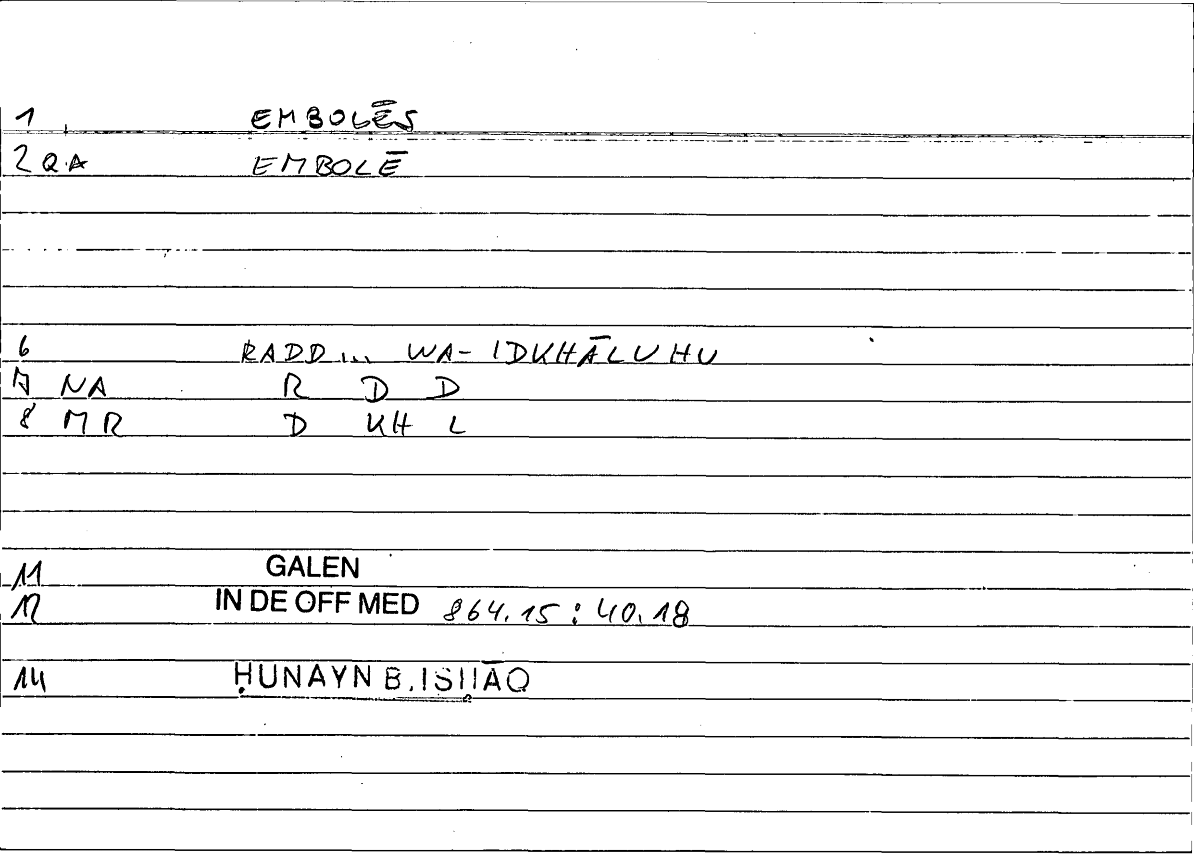 1 EMBOLĒS
2 QA EMBOLĒ
6 RADD... WA-IDKHĀLUHU
7 NA R D D
8 MR D KH L
11 GALEN
12 IN DE OFF MED 864.15 : 40.18
14 ḤUNAYN B.ISḤĀQ